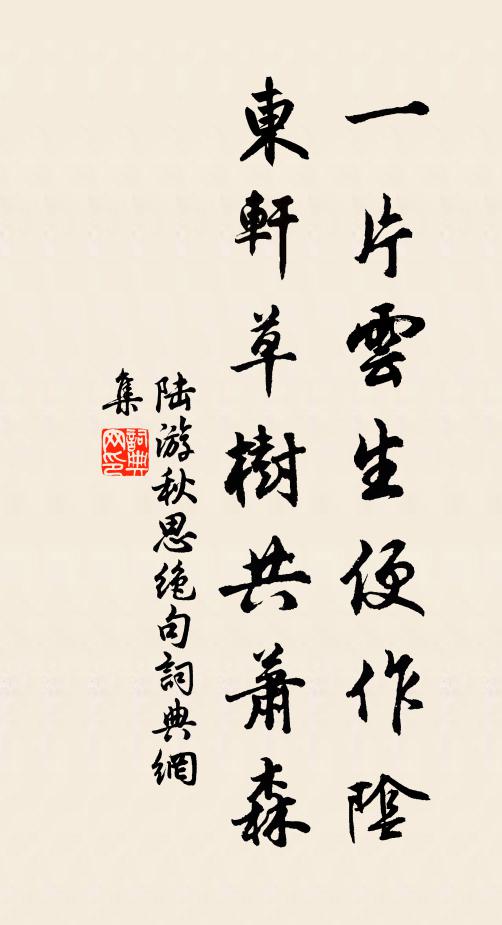 一片雲生便作陰
東軒草樹共蕭森
陸游秋思絕句詞典網
集
詞典
网印